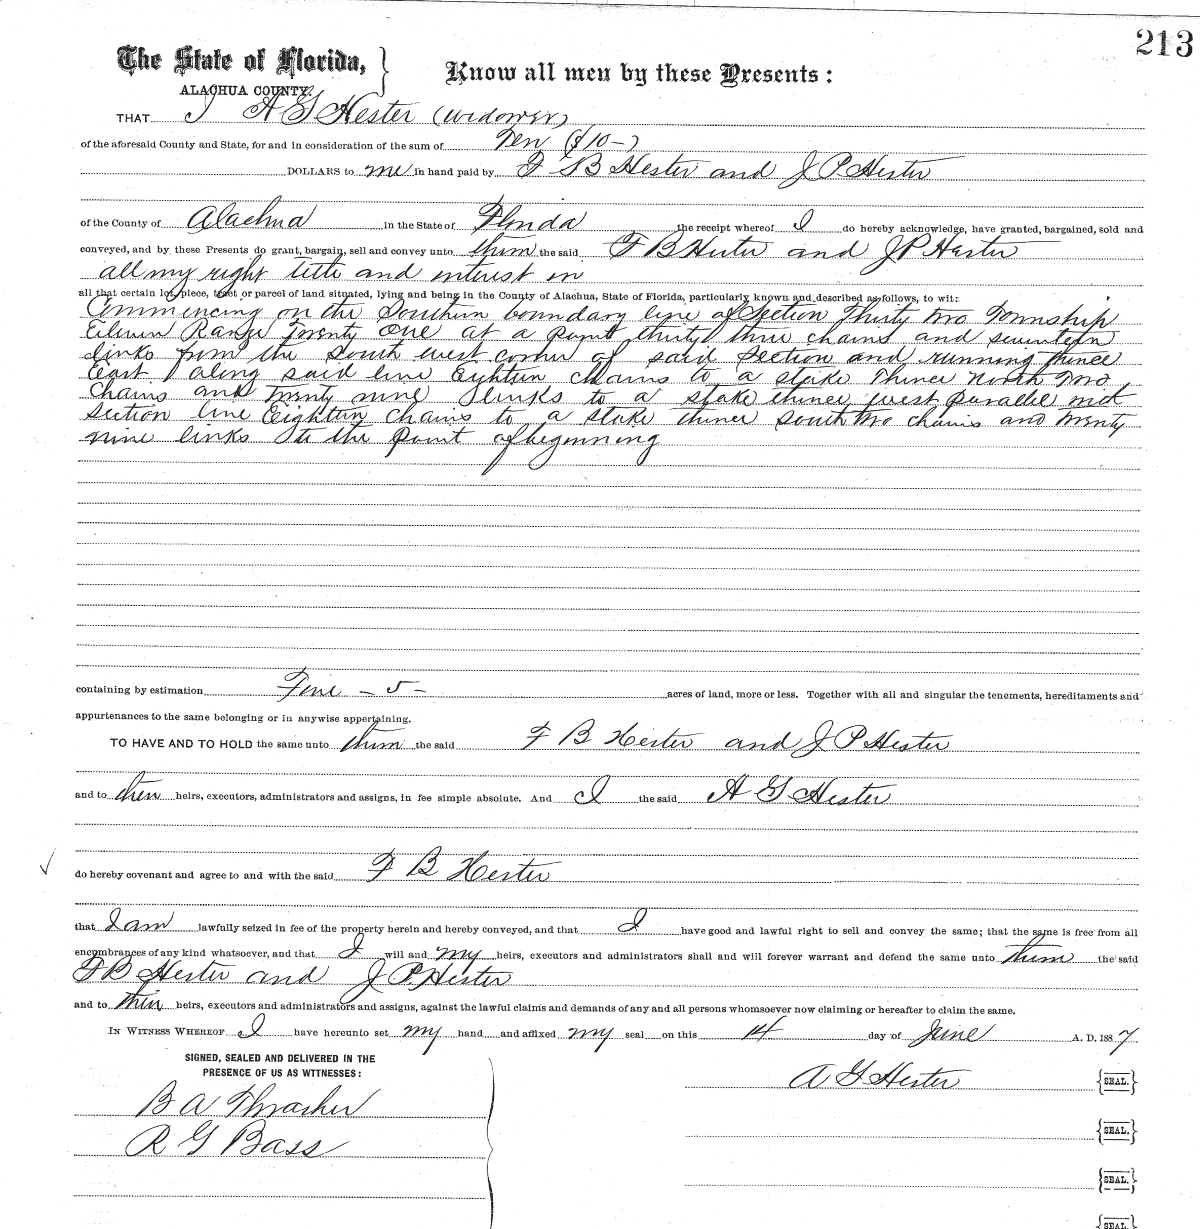 213
The State of Florida, } Know all men by these Presents:
ALACHUA COUNTY.
THAT I A G Hester (widower)
of the aforesaid County and State, for and in consideration of the sum of Ten ($10-)
DOLLARS to me in hand paid by F B Hester and J P Hester
of the County of Alachua in the State of Florida the receipt whereof I do hereby acknowledge, have granted, bargained, sold and
conveyed, and by these Presents do grant, bargain, sell and convey unto them the said F B Hester and J P Hester
all my right title and interest in
all that certain lot, piece, tract or parcel of land situated, lying and being in the County of Alachua, State of Florida, particularly known and described as follows, to wit:
Commencing on the Southern boundary line of Section Thirty two Township
Eleven Range Twenty One at a point thirty three chains and seventeen
links from the South west corner of said Section and running thence
East along said line Eighteen chains to a stake Thence North Two
Chains and Twenty nine links to a stake thence west parallel with
Section line Eighteen Chains to a stake thence south two chains and twenty
nine links to the point of beginning
containing by estimation Five - 5 - acres of land, more or less. Together with all and singular the tenements, hereditaments and
appurtenances to the same belonging or in anywise appertaining.
TO HAVE AND TO HOLD the same unto them the said F B Hester and J P Hester
and to their heirs, executors, administrators and assigns, in fee simple absolute. And I the said A G Hester
do hereby covenant and agree to and with the said F B Hester
that I am lawfully seized in fee of the property herein and hereby conveyed, and that I have good and lawful right to sell and convey the same; that the same is free from all
encumbrances of any kind whatsoever, and that I will and my heirs, executors and administrators shall and will forever warrant and defend the same unto them the said
F B Hester and J P Hester
and to their heirs, executors and administrators and assigns, against the lawful claims and demands of any and all persons whomsoever now claiming or hereafter to claim the same.
IN WITNESS WHEREOF I have hereunto set my hand and affixed my seal on this 14 day of June A. D. 1887
SIGNED, SEALED AND DELIVERED IN THE
PRESENCE OF US AS WITNESSES:
A G Hester {SEAL.}
B A Thrasher
R G Bass
{SEAL.}
{SEAL.}
{SEAL.}